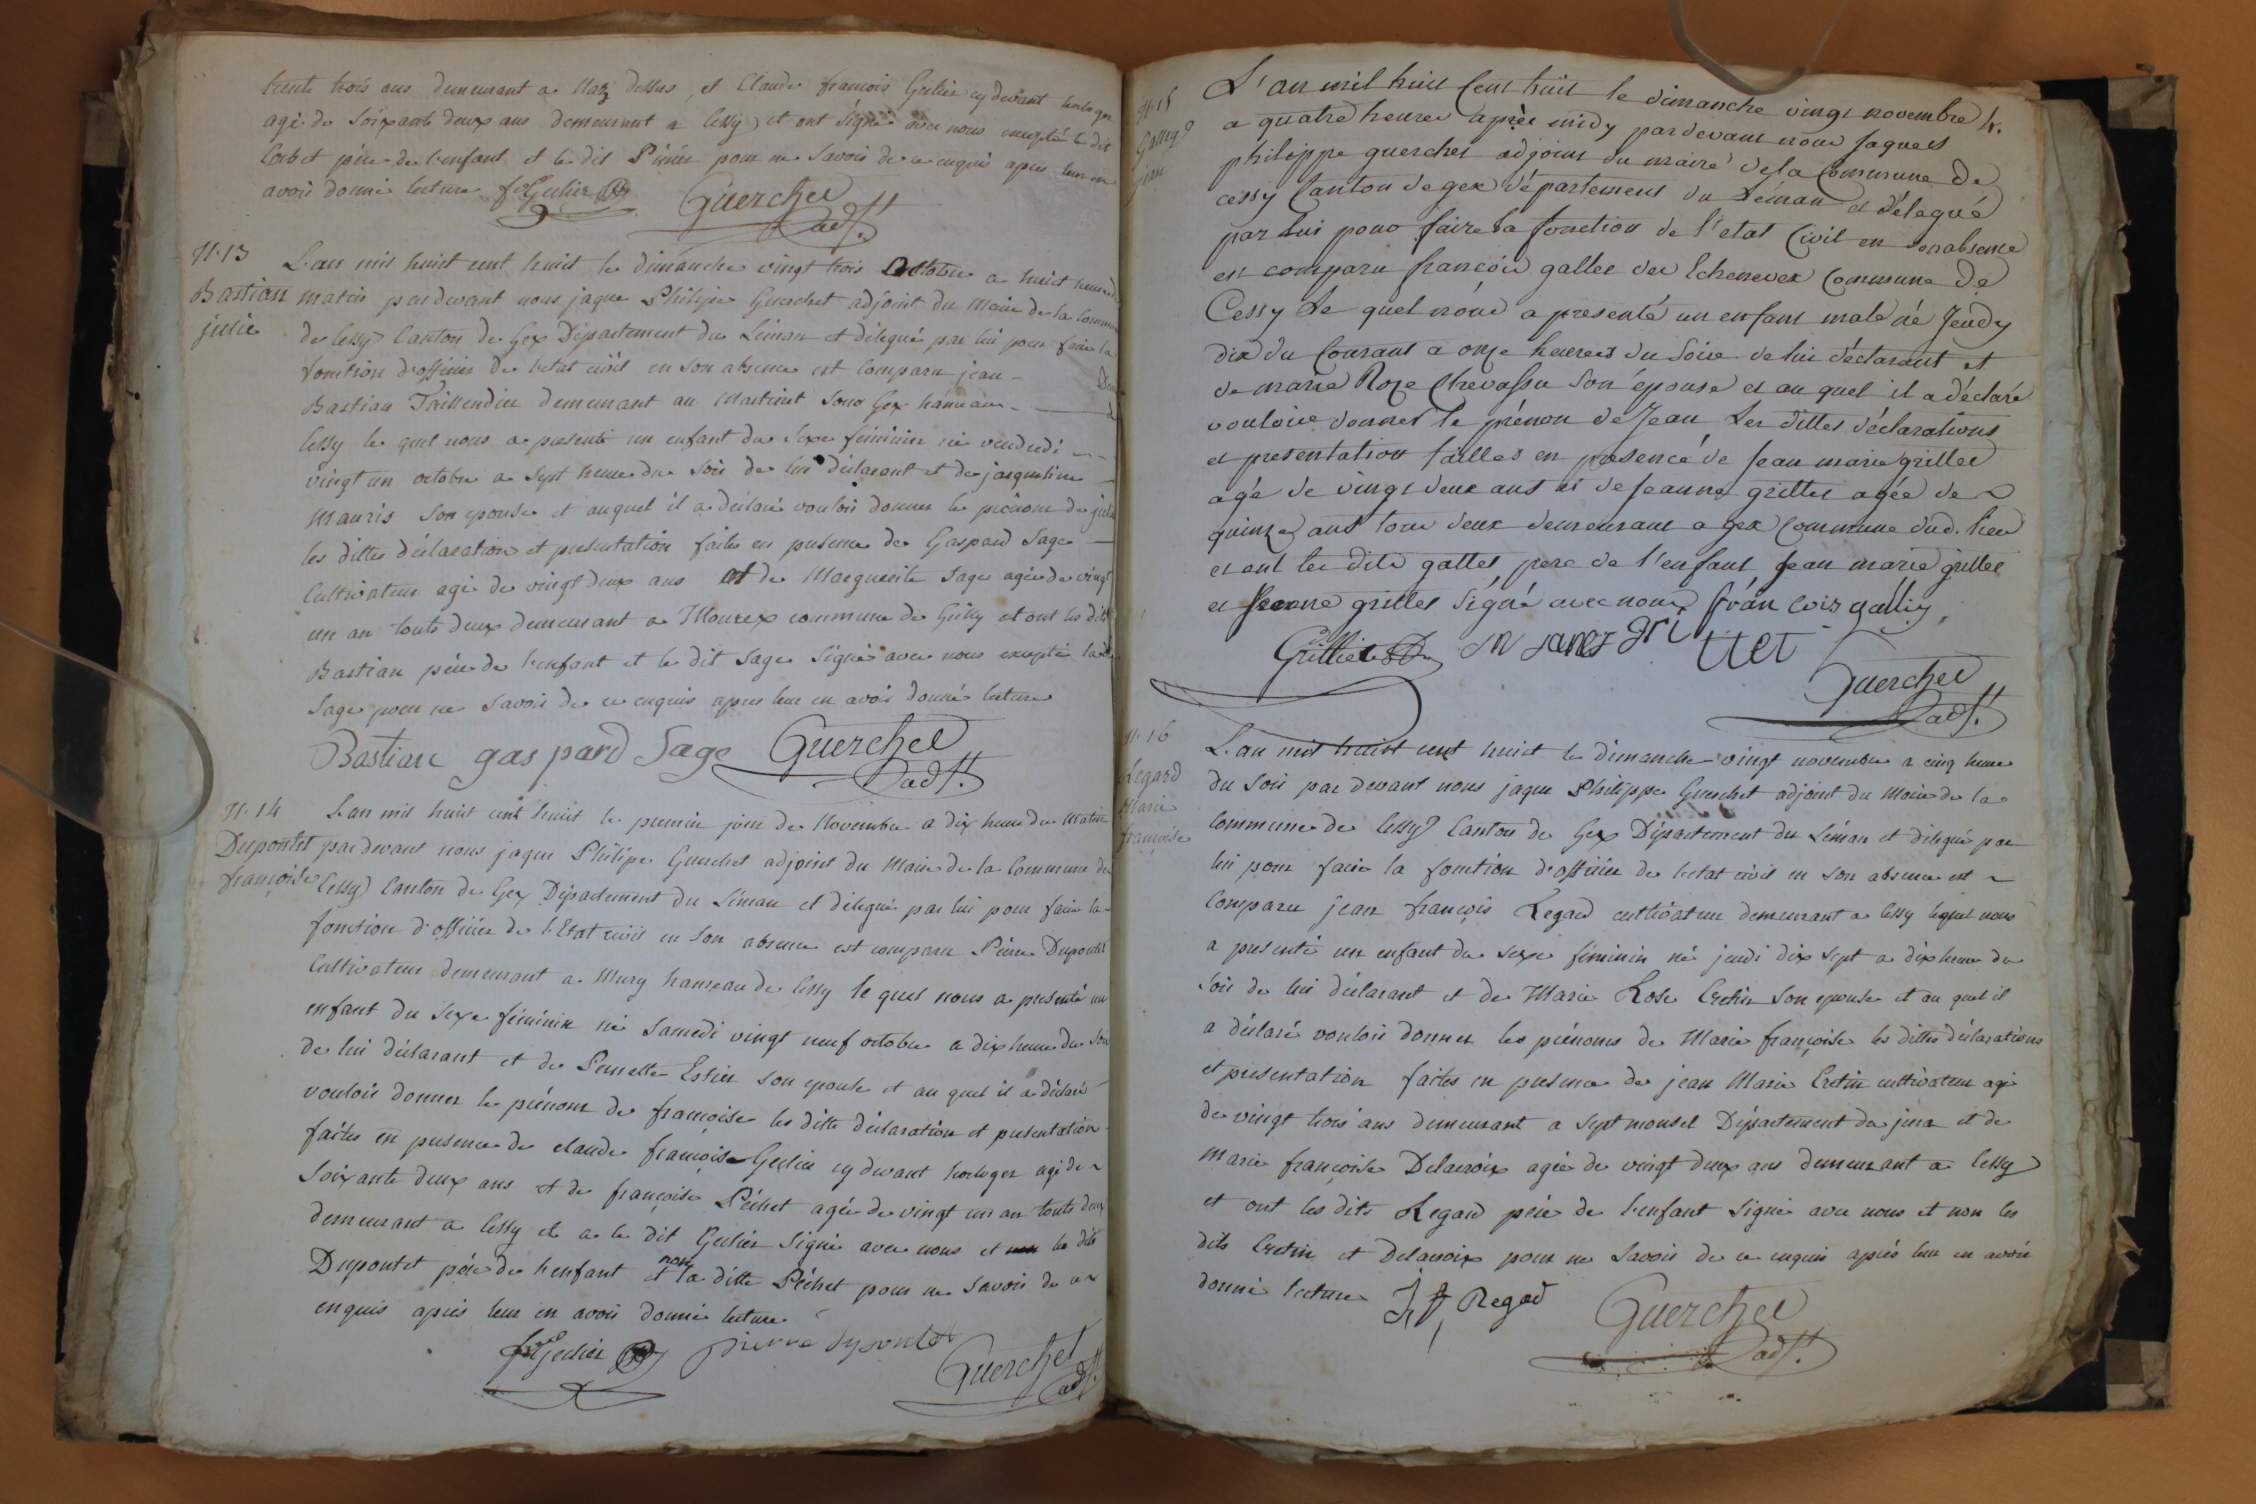 trente trois ans demeurant a Naz dessus, et Claude françois Gulier cy devant horloger
agé de soixante deux ans demeurant a Cessy, et ont signé avec nous excepté le dit
père de l'enfant et le dit pour ne savoir de ce enquis apres leur en
avoir donné lecture fs Gulier Guerchet
adjt.
N. 13
Bastian
julie
L'an mil huit cent huit le dimanche vingt trois Octobre a huit heures du
matin par devant nous jaque Philipe Guerchet adjoint du Maire de la Commune
de Cessy Canton de Gex Département du Léman et délegué par lui pour faire la
fonction d'officier de l'etat civil en son absence est Comparu jean
Bastian Taillendier demeurant au Martinet sous Gex hameau
Cessy le quel nous a presenté un enfant du sexe féminin né vendredi
vingt un octobre a sept heure du soir de lui déclarant et de jacqueline
Mauris son epouse et auquel il a déclaré vouloir donner le prénom de julie
les dittes déclaration et presentation faites en presence de Gaspard Sage
Cultivateur agé de vingt deux ans et de Marguerite Sage agée de vingt
un an touts deux demeurant a Mourex commune de Grilly et ont les dits
Bastian père de l'enfant et le dit Sage signé avec nous excepté la ditte
Sage pour ne savoir de ce enquis apres leur en avoir donné lecture
Bastian gaspard Sage Guerchet
adjt.
N. 14
Dupontet
françoise
L'an mil huit cent huit le premier jour de Novembre a dix heure du Matin
pardevant nous jaque Philipe Guerchet adjoint du Maire de la Commune de
Cessy Canton de Gex Département du Léman et délegué par lui pour faire la
fonction d'officier de l'Etat civil en son absence est comparu Pierre Dupontet
Cultivateur demeurant a Mury hameau de Cessy le quel nous a presenté un
enfant du sexe féminin né samedi vingt neuf octobre a dix heure du soir
de lui déclarant et de Pernette Estier son epouse et au quel il a déclaré
vouloir donner le prénom de françoise les ditte déclaration et presentation
faites en presence de claude françois Gulier cy devant horloger agé de
soixante deux ans et de françoise Péchet agée de vingt un an touts deux
demeurant a Cessy et a le dit Gulier signé avec nous et le dit
Dupontet père de l'enfant et non la ditte Péchet pour ne savoir de ce
enquis après leur en avoir donné lecture
fs Gulier pierre dupontet Guerchet
adjt.
N. 15
Galley
jean
L'an mil huit Cent huit le dimanche vingt novembre
a quatre heures après midy par devant nous Jaques
philippe guerchet adjoint du maire de la Commune De
cessy Canton de gex département du Léman et délegué
par Lui pour faire la fonction de l'etat Civil en son absence
est comparu françois galley der Echenevex Commune De
Cessy Le quel nous a presenté un enfant male né Jeudy
dix du Courant a onze heures du Soir de lui déclarant et
de marie Roze Chevassu Son épouse et au quel il a déclaré
vouloir donner le prénom de Jean Les dittes déclarations
et presentation faittes en presence de Jean marie grillet
agé de vingt deux ans et de Jeanne grillet agée de
quinze ans tous deux demeurant a gex Commune dud. lieu
et ont les dits galley pere de l'enfant Jean marie grillet
et Jeanne grillet Signé avec nous françois galley
Grillet jenes gri llet
Guerchet
adjt.
N. 16
Regard
Marie
françoise
L'an mil huit cent huit le dimanche vingt novembre a cinq heure
du soir par devant nous jaque Philippe Guerchet adjoint du Maire de la
Commune de Cessy Canton de Gex Département du Léman et délegué par
lui pour faire la fonction d'officier de l'etat civil en son absence est
Comparu jean françois Regard cultivateur demeurant a Cessy lequel nous
a presenté un enfant du sexe féminin né jeudi dix sept a dix heure du
soir de lui déclarant et de Marie Rose Cretin son epouse et au quel il
a déclaré vouloir donner les prénoms de Marie françoise les dittes déclarations
et presentation faites en presence de jean Marie Cretin cultivateur agé
de vingt trois ans demeurant a septmoncel Département du jura et de
Marie françoise Delacroix agée de vingt deux ans demeurant a Cessy
et ont les dits Regard père de l'enfant signé avec nous et non les
dits Cretin et Delacroix pour ne savoir de ce enquis après leur en avoir
donné lecture J f Regad Guerchet
adjt.